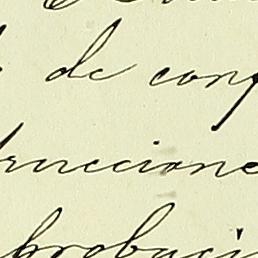 de conf
truccione
probaci